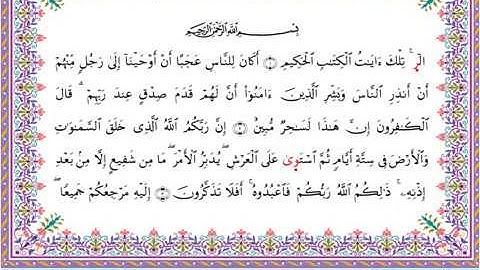 بِسْمِ اللَّهِ الرَّحْمَٰنِ الرَّحِيمِ
الٓر ۚ تِلْكَ ءَايَٰتُ ٱلْكِتَٰبِ ٱلْحَكِيمِ ۝ أَكَانَ لِلنَّاسِ عَجَبًا أَنْ أَوْحَيْنَآ إِلَىٰ رَجُلٍ مِّنْهُمْ
أَنْ أَنذِرِ ٱلنَّاسَ وَبَشِّرِ ٱلَّذِينَ ءَامَنُوٓا۟ أَنَّ لَهُمْ قَدَمَ صِدْقٍ عِندَ رَبِّهِمْ ۗ قَالَ
ٱلْكَٰفِرُونَ إِنَّ هَٰذَا لَسَٰحِرٌ مُّبِينٌ ۝ إِنَّ رَبَّكُمُ ٱللَّهُ ٱلَّذِى خَلَقَ ٱلسَّمَٰوَٰتِ
وَٱلْأَرْضَ فِى سِتَّةِ أَيَّامٍ ثُمَّ ٱسْتَوَىٰ عَلَى ٱلْعَرْشِ ۖ يُدَبِّرُ ٱلْأَمْرَ ۖ مَا مِن شَفِيعٍ إِلَّا مِنۢ بَعْدِ
إِذْنِهِۦ ۚ ذَٰلِكُمُ ٱللَّهُ رَبُّكُمْ فَٱعْبُدُوهُ ۚ أَفَلَا تَذَكَّرُونَ ۝ إِلَيْهِ مَرْجِعُكُمْ جَمِيعًا ۖ